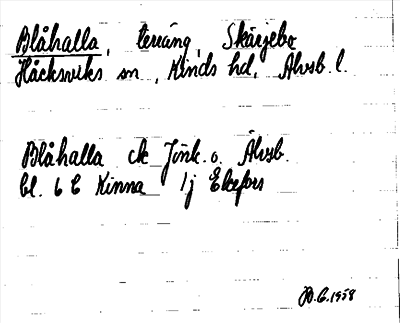 Blåhalla, terräng, Skärjebo
Håcksviks sn, Kinds hd, Älvsb. l.
Blåhalla ek Jönk. o. Älvsb.
bl. 6 C Kinna 1j Ekefors
1958